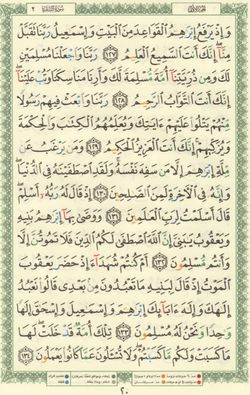 وَإِذْ يَرْفَعُ إِبْرَٰهِـۧمُ ٱلْقَوَاعِدَ مِنَ ٱلْبَيْتِ وَإِسْمَـٰعِيلُ رَبَّنَا تَقَبَّلْ
مِنَّآ إِنَّكَ أَنتَ ٱلسَّمِيعُ ٱلْعَلِيمُ ١٢٧ رَبَّنَا وَٱجْعَلْنَا مُسْلِمَيْنِ
لَكَ وَمِن ذُرِّيَّتِنَآ أُمَّةً مُّسْلِمَةً لَّكَ وَأَرِنَا مَنَاسِكَنَا وَتُبْ عَلَيْنَآ
إِنَّكَ أَنتَ ٱلتَّوَّابُ ٱلرَّحِيمُ ١٢٨ رَبَّنَا وَٱبْعَثْ فِيهِمْ رَسُولًا
مِّنْهُمْ يَتْلُوا۟ عَلَيْهِمْ ءَايَـٰتِكَ وَيُعَلِّمُهُمُ ٱلْكِتَـٰبَ وَٱلْحِكْمَةَ
وَيُزَكِّيهِمْ إِنَّكَ أَنتَ ٱلْعَزِيزُ ٱلْحَكِيمُ ١٢٩ وَمَن يَرْغَبُ عَن
مِّلَّةِ إِبْرَٰهِـۧمَ إِلَّا مَن سَفِهَ نَفْسَهُۥ وَلَقَدِ ٱصْطَفَيْنَـٰهُ فِى ٱلدُّنْيَا
وَإِنَّهُۥ فِى ٱلْـَٔاخِرَةِ لَمِنَ ٱلصَّـٰلِحِينَ ١٣٠ إِذْ قَالَ لَهُۥ رَبُّهُۥٓ أَسْلِمْ
قَالَ أَسْلَمْتُ لِرَبِّ ٱلْعَـٰلَمِينَ ١٣١ وَوَصَّىٰ بِهَآ إِبْرَٰهِـۧمُ بَنِيهِ
وَيَعْقُوبُ يَـٰبَنِىَّ إِنَّ ٱللَّهَ ٱصْطَفَىٰ لَكُمُ ٱلدِّينَ فَلَا تَمُوتُنَّ إِلَّا
وَأَنتُم مُّسْلِمُونَ ١٣٢ أَمْ كُنتُمْ شُهَدَآءَ إِذْ حَضَرَ يَعْقُوبَ
ٱلْمَوْتُ إِذْ قَالَ لِبَنِيهِ مَا تَعْبُدُونَ مِنۢ بَعْدِى قَالُوا۟ نَعْبُدُ
إِلَـٰهَكَ وَإِلَـٰهَ ءَابَآئِكَ إِبْرَٰهِـۧمَ وَإِسْمَـٰعِيلَ وَإِسْحَـٰقَ إِلَـٰهًا
وَٰحِدًا وَنَحْنُ لَهُۥ مُسْلِمُونَ ١٣٣ تِلْكَ أُمَّةٌ قَدْ خَلَتْ لَهَا
مَا كَسَبَتْ وَلَكُم مَّا كَسَبْتُمْ وَلَا تُسْـَٔلُونَ عَمَّا كَانُوا۟ يَعْمَلُونَ ١٣٤
٢٠